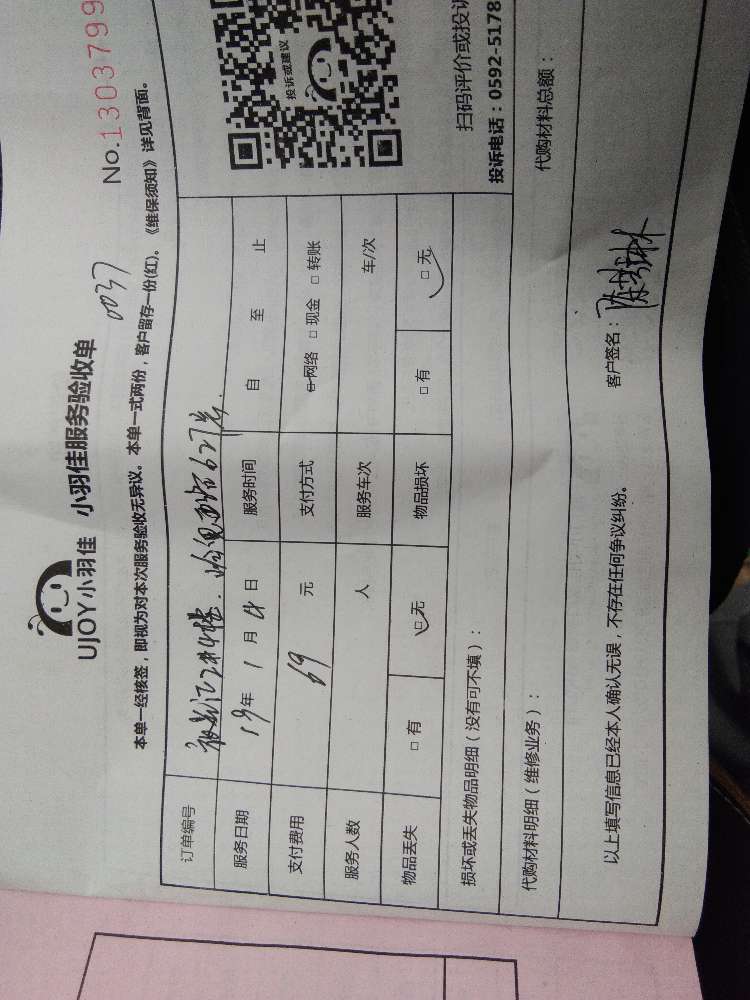 UJOY小羽佳 小羽佳服务验收单
0037
No.1303799
本单一经核签，即视为对本次服务验收无异议。本单一式两份，客户留存一份(红)。《维保须知》详见背面。
订单编号 627
服务日期 19年 1月 4日 服务时间 自 至 止
支付费用 69 元 支付方式 □网络 □现金 □转账
服务人数 人 服务车次 车/次
物品丢失 □有 □无 物品损坏 □有 □无
损坏或丢失物品明细（没有可不填）：
代购材料明细（维修业务）： 代购材料总额：
以上填写信息已经本人确认无误，不存在任何争议纠纷。 客户签名：
投诉或建议
扫码评价或投诉
投诉电话：0592-5178